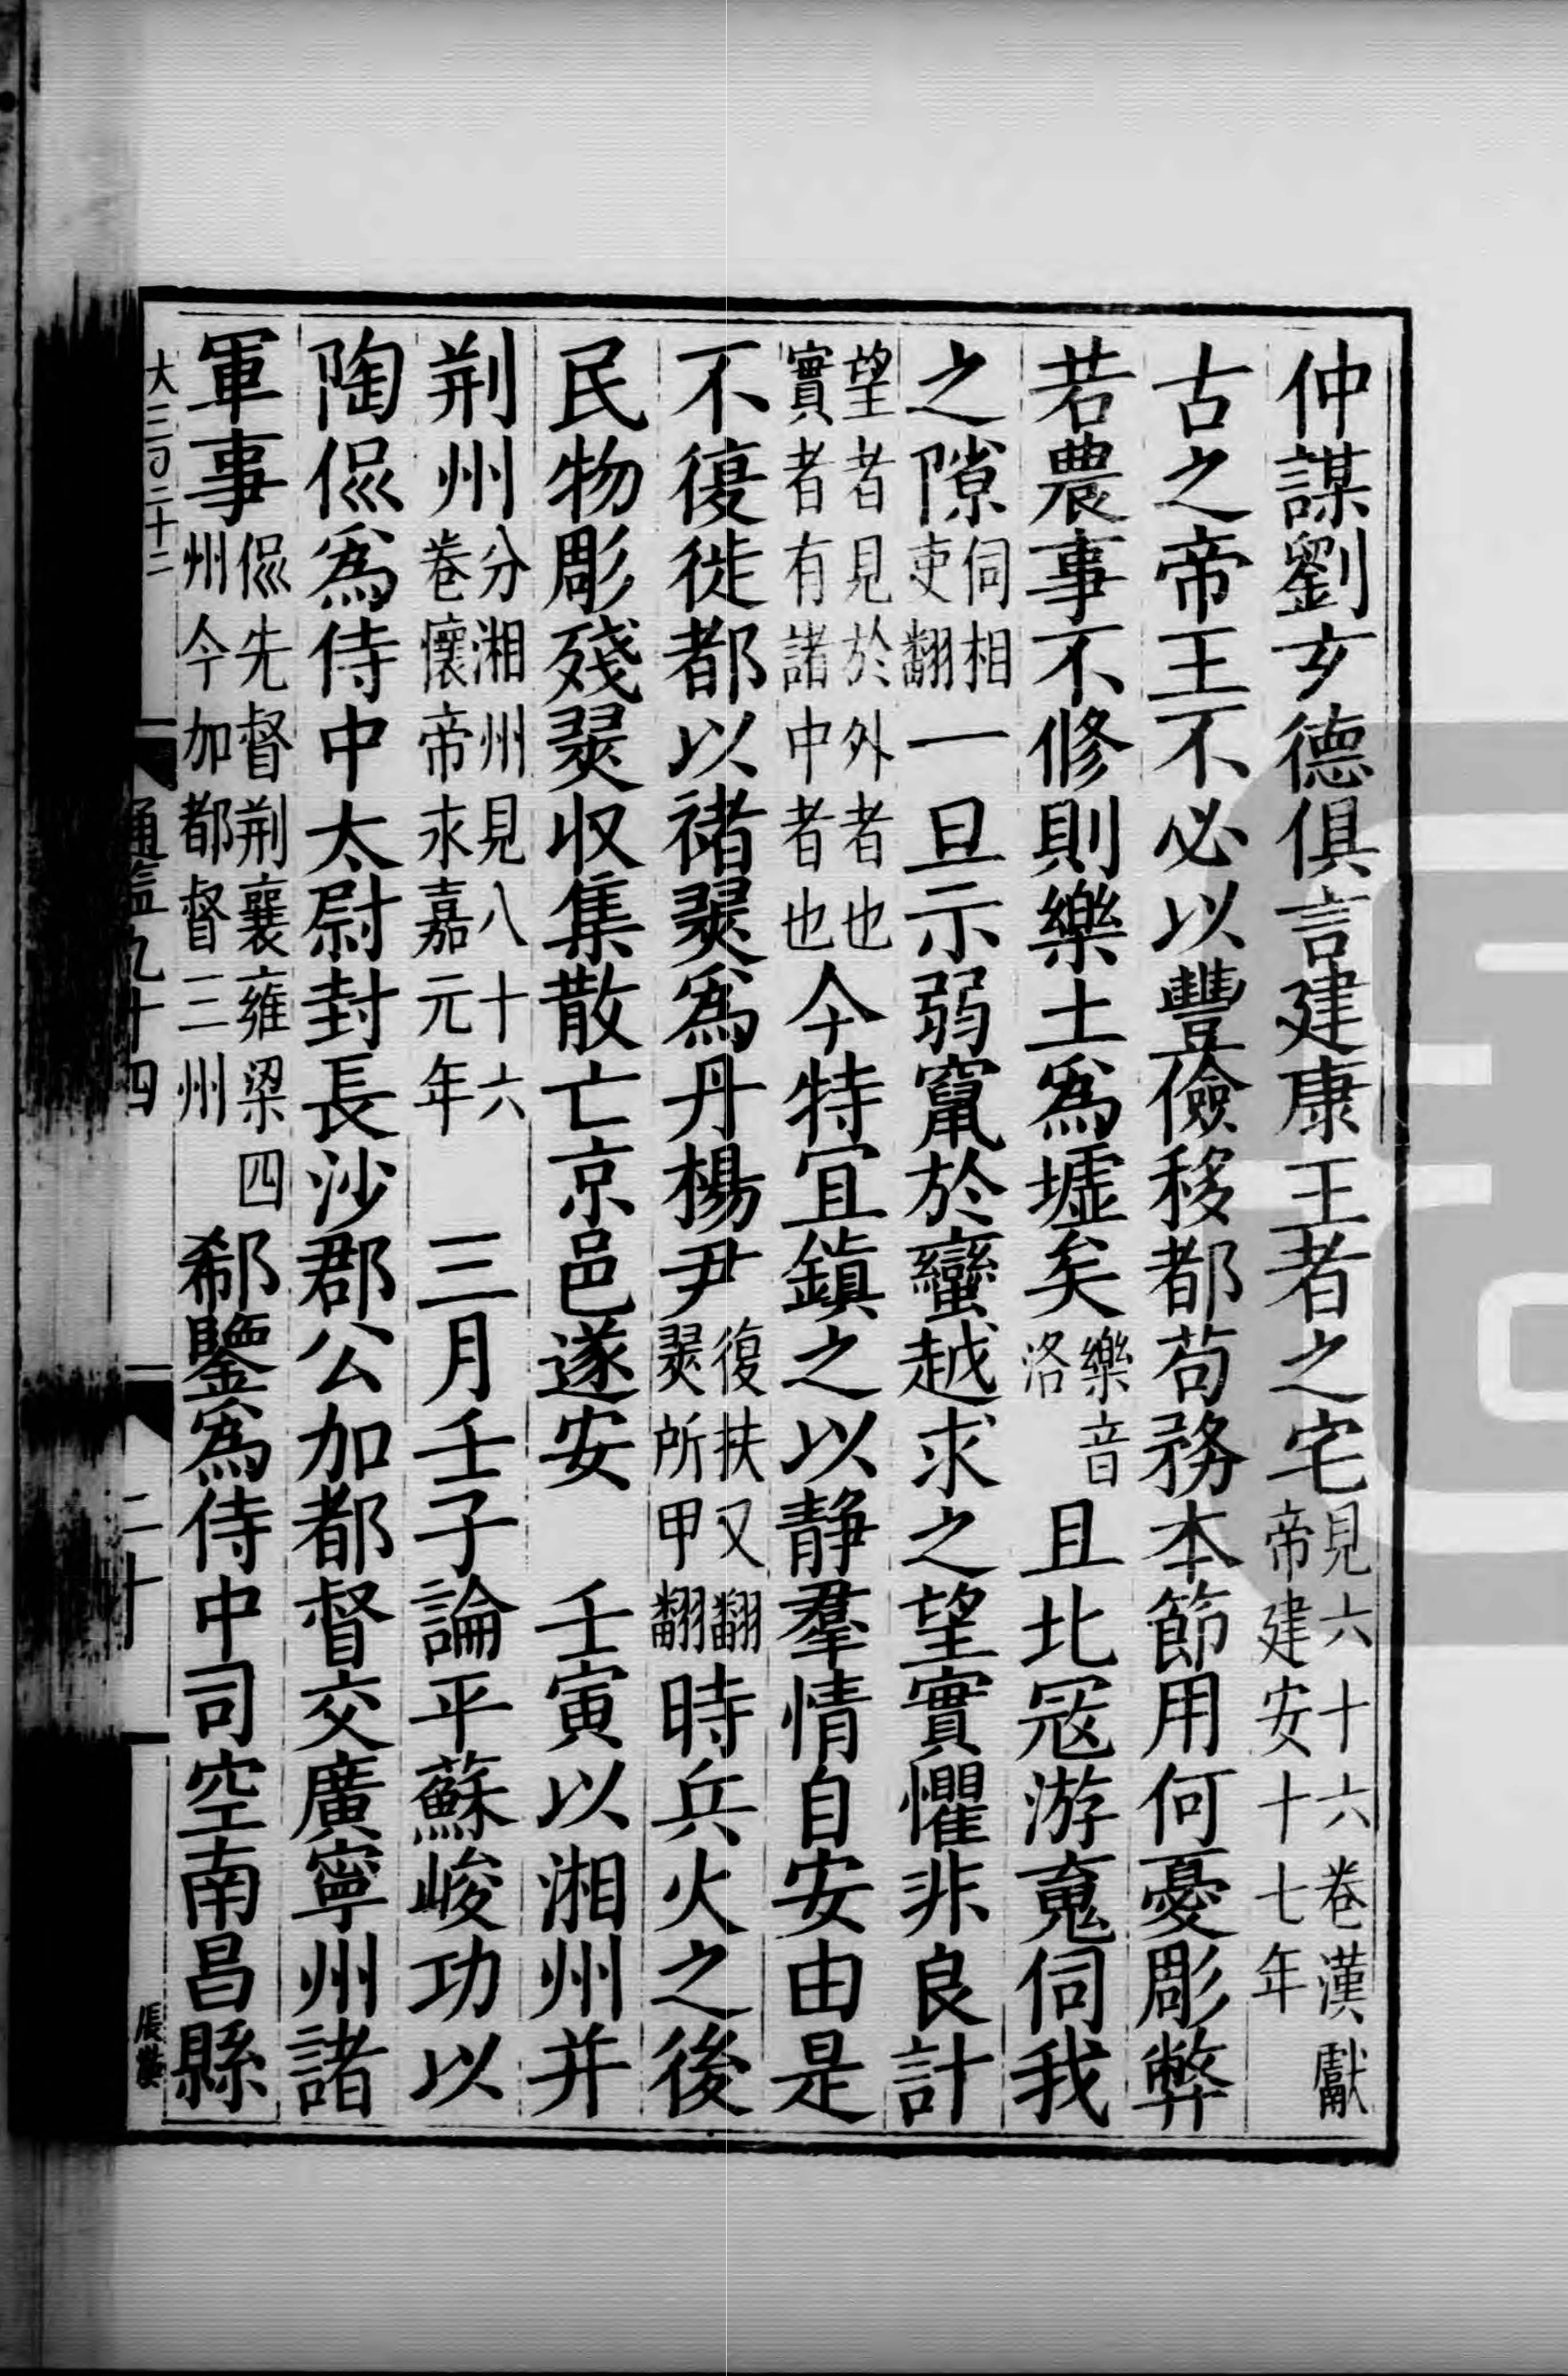 仲謀劉玄德俱言建康王者之宅見六十六卷漢獻帝建安十七年
古之帝王不必以豐儉移都苟務本節用何憂彫弊
若農事不修則樂土爲墟矣樂音洛且北寇游䰟伺我
之隙伺相吏翻一旦示弱竄於蠻越求之望實懼非良計
望者見於外者也實者有諸中者也今特宜鎮之以静羣情自安由是
不復徙都以禇翜爲丹楊尹復扶又翻翜所甲翻時兵火之後
民物彫殘翜収集散亡京邑遂安壬寅以湘州并
荆州分湘州見八十六卷懷帝永嘉元年三月壬子論平蘇峻功以
陶侃爲侍中太尉封長沙郡公加都督交廣寧州諸
軍事侃先督荆襄雍梁四州今加都督三州郗鑒爲侍中司空南昌縣
大三百二十二
通鑑九十四
二十